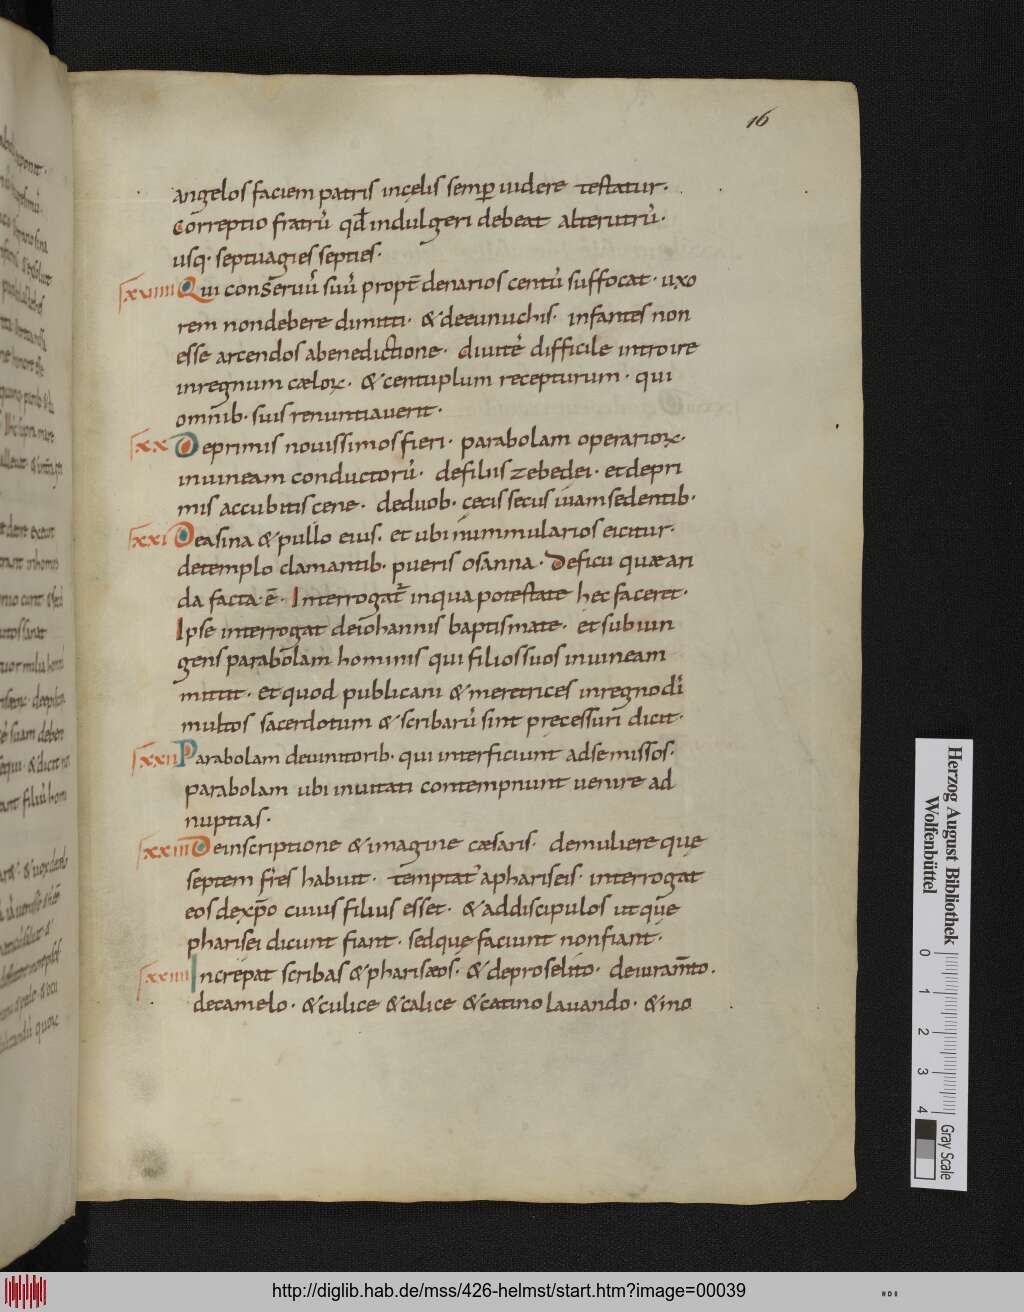 16
angelos faciem patris incęlis semp uidere testatur.
Correptio fratrū qđ indulgeri debeat alterutrū.
usq. septuagies septies.
xviiii Qui conseruū suū propt̄ denarios centū suffocat. uxo
rem non debere dimitti. & de eunuchis. infantes non
esse arcendos a benedictione. diuitē difficile introire
in regnum cælorꝝ. & centuplum recepturum. qui
omnib. suis renuntiauerit.
xx De primis nouissimos fieri. parabolam operariorꝝ.
in uineam conductorū. de filiis zebedei. et de pri
mis accubitis cene. de duob. cecis secus uiam sedentib.
xxi De asina & pullo eius. et ubi nummularios eicitur.
de templo clamantib. pueris osanna. De ficu quæ ari
da facta ē. Interrogat̄ in qua potestate hec faceret.
Ipse interrogat de iohannis baptismate. et subiun
gens parabolam hominis qui filios suos in uineam
mittit. et quod publicani & meretrices in regno dī
multos sacerdotum & scribarū sint precessuri dicit.
xxii Parabolam de uinitorib. qui interficiunt ad se missos.
parabolam ubi inuitati contempnunt uenire ad
nuptias.
xxiii De inscriptione & imagine cæsaris. de muliere que
septem frēs habuit. temptat̄ a phariseis. interrogat
eos de xp̄o cuius filius esset. & ad discipulos ut quę
pharisei dicunt fiant. sed que faciunt non fiant.
xxiiii Increpat scribas & pharisæos. & de proselito. de iuram̄to.
de camelo. & culice & calice & catino lauando. & in o
Herzog August Bibliothek
Wolfenbüttel
0 1 2 3 4
Gray Scale
http://diglib.hab.de/mss/426-helmst/start.htm?image=00039